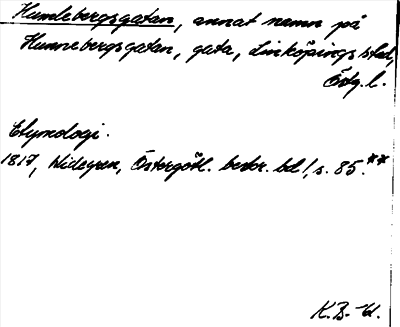 Humlebergsgatan, annat namn på
Hunnebergsgatan, gata, Linköpings stad,
Östg. l.
Etymologi.
1817, Widegren, Östergötl. beskr. bd 1, s. 85.**
K.B-U.